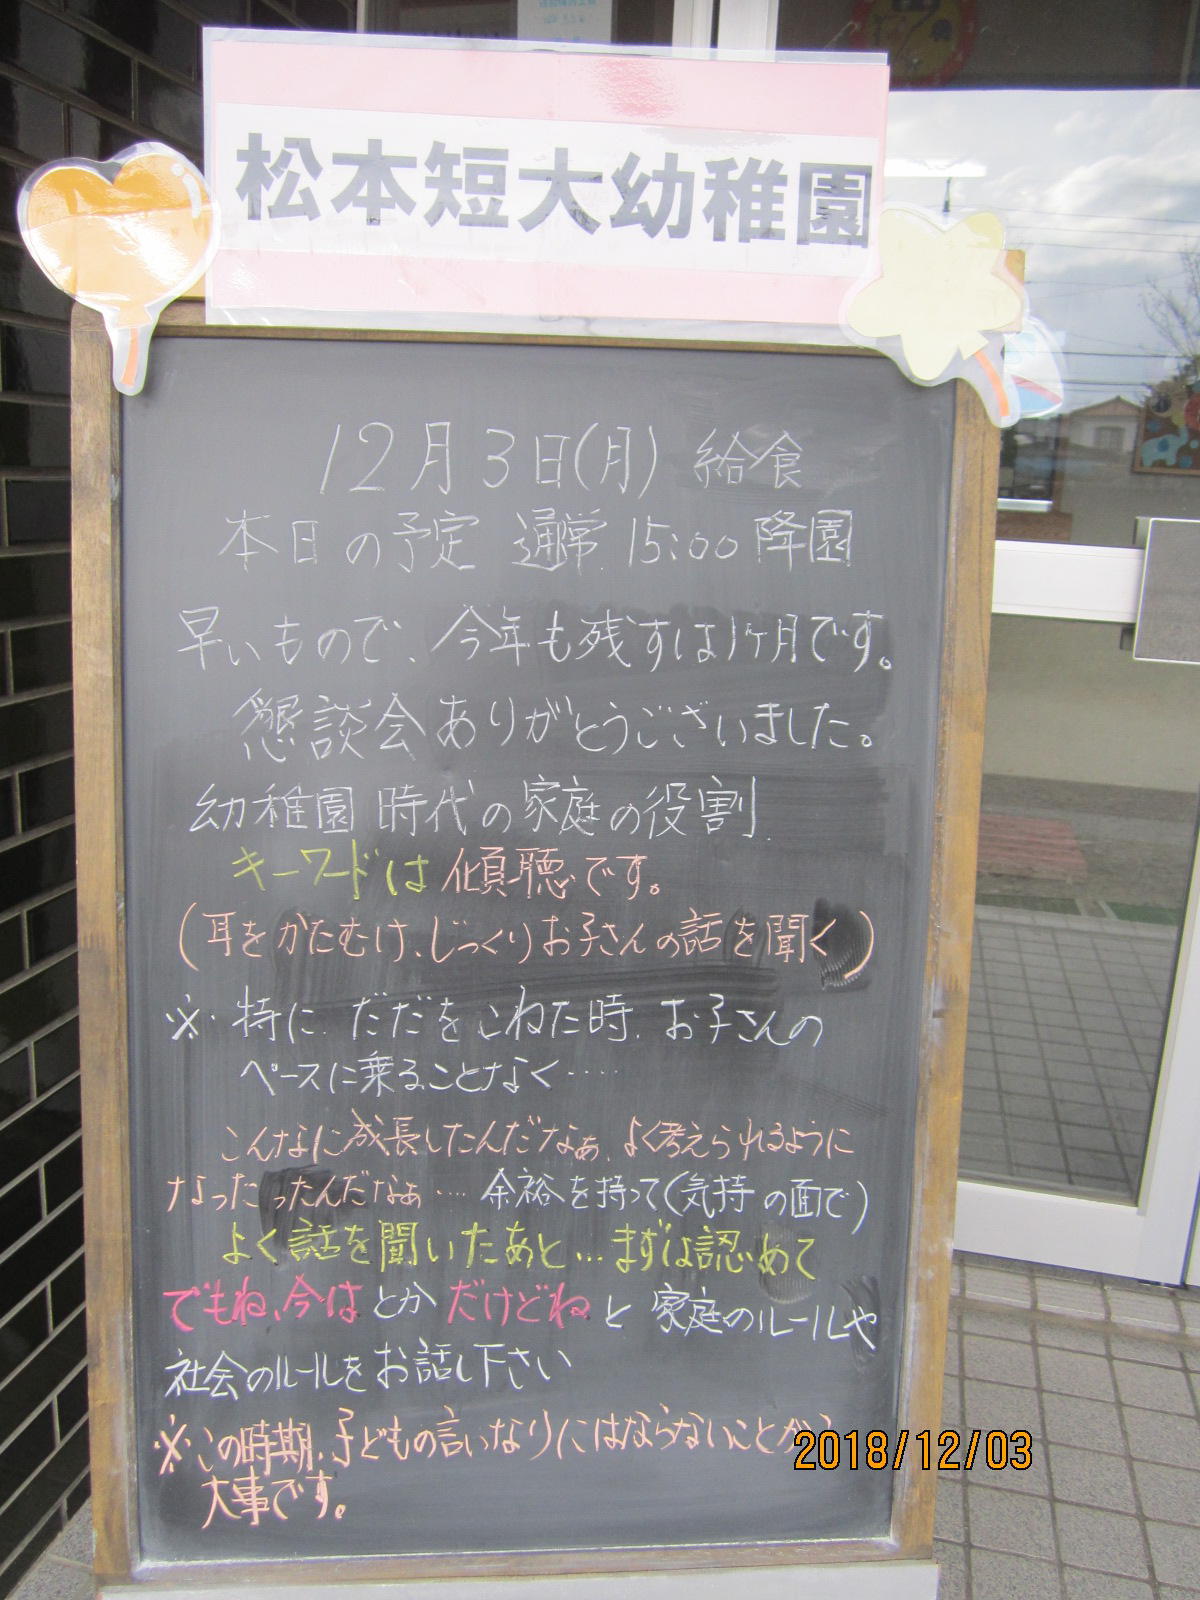 松本短大幼稚園
12月3日(月) 給食
本日の予定 通常 15:00 降園
早いもので、今年も残すは1ヶ月です。
懇談会ありがとうございました。
幼稚園時代の家庭の役割
キーワードは 傾聴です。
(耳をかたむけ、じっくりお子さんの話を聞く)
※ 特に だだをこねた時、お子さんの
ペースに乗ることなく……
こんなに成長したんだなぁ、よく考えられるように
なったったんだなぁ… 余裕を持って(気持の面で)
よく話を聞いたあと…まずは認めて
でもね、今は とか だけどね と 家庭のルールや
社会のルールをお話し下さい
※この時期、子どもの言いなりにはならないことが
大事です。
2018/12/03